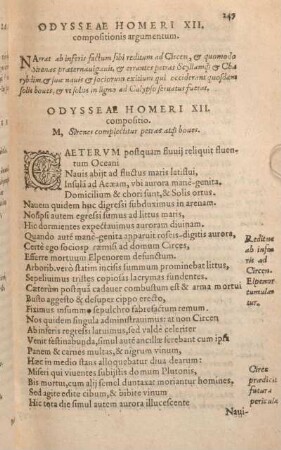 247
ODYSSEAE HOMERI XII.
compositionis argumentum.
NArrat ab inferis factum sibi reditum ad Circen, & quomodo
Sirenas praeternauigarit, & errantes petras Scyllamq́; & Cha
rybdim & suae nauis & sociorum exitium qui occiderant quosdam
solis boues, & vt solus in ligno ad Calypso seruatus fuerat.
ODYSSEAE HOMERI XII.
compositio.
M, Sirenes complectitur petras atq́; boues.
CAETERVM postquam fluuij reliquit fluen-
tum Oceani
Nauis abijt ad fluctus maris latiflui,
Insulā ad Aeæam, vbi aurora manè-genita,
Domicilium & chori sunt, & Solis ortus.
Nauem quidem huc digressi subduximus in arenam.
Nosipsi autem egressi sumus ad littus maris,
Hic dormientes expectauimus auroram diuinam.
Quando autē manè-genita apparuit roseis-digitis aurora,
Certè ego socios præmisi ad domum Circes,
Efferre mortuum Elpenorem defunctum.
Arbores verò statim incisi summum prominebat littus,
Sepeliuimus tristes copiosas lacrymas fundentes.
Caeterùm postquā cadauer combustum est & arma mortui
Busto aggesto & desuper cippo erecto,
Fiximus in summo sepulchro fabrefactum remum.
Nos quidem singula administrauimus: at non Circen
Ab inferis regressi latuimus, sed valdè celeriter
Venit festinabunda, simul autē ancillæ ferebant cum ipsa
Panem & carnes multas, & nigrum vinum,
Haec in medio stans alloquebatur diua dearum:
Miseri qui viuentes subijstis domum Plutonis,
Bis mortui, cum alij semel duntaxat moriantur homines,
Sed agite edite cibum, & bibite vinum
Hic tota die simul autem aurora illucescente
Reditus
ab infe
ris ad
Circen.
Elpenor
cumulan
tur.
Circe
prædicit
futura
pericula
Naui-